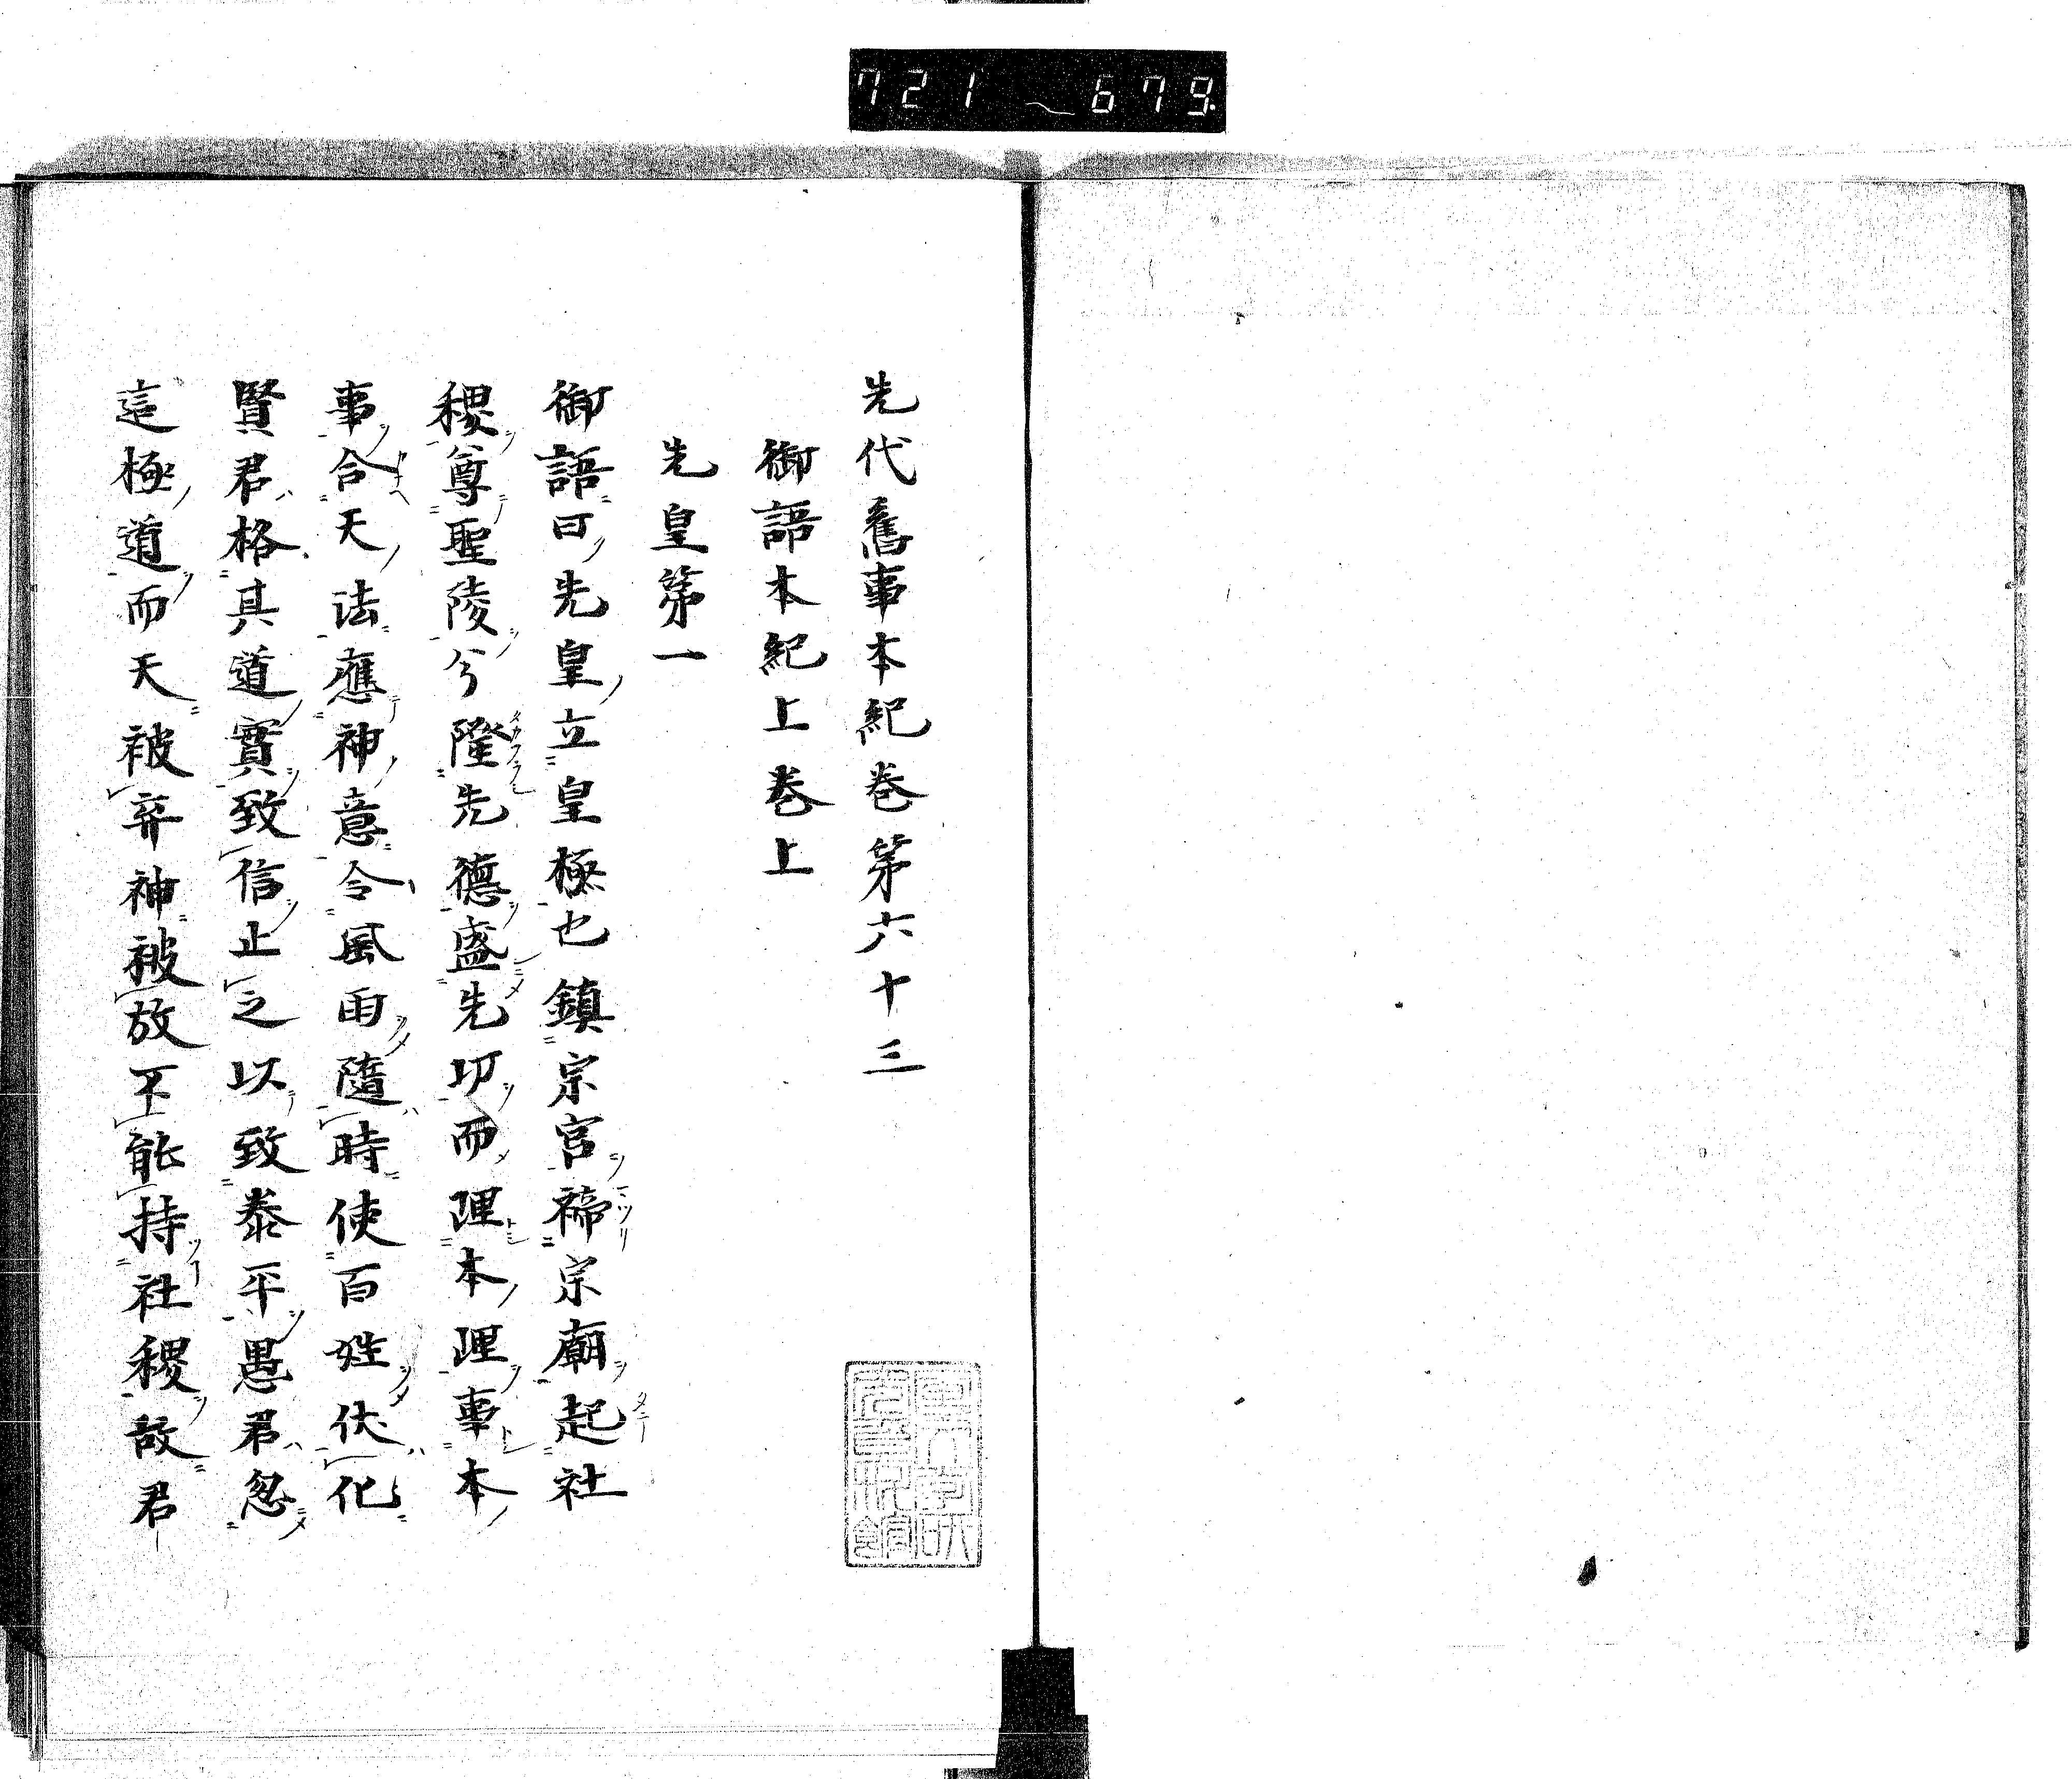 721-679
先代舊事本紀巻第六十三
御語本紀上巻上
先皇第一
御語曰先皇立皇極也鎮宗宮禘宗廟起社
稷尊聖陵兮隆先德盛先功而理本理事本
事合天法應神意令風雨隨時使百姓伏化
賢君格其道實致信止之以致泰平愚君忽
這極道而天被弃神被放不能持社稷故君